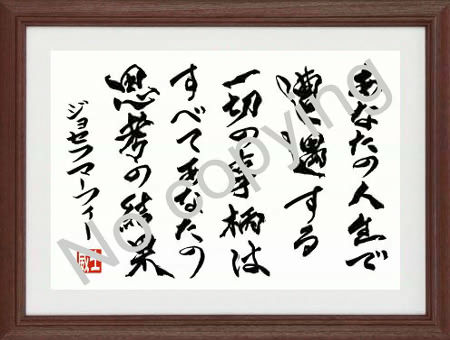 あなたの人生で
遭遇する
一切の事柄は
すべてあなたの
思考の結果
ジョセフマーフィー
No copying